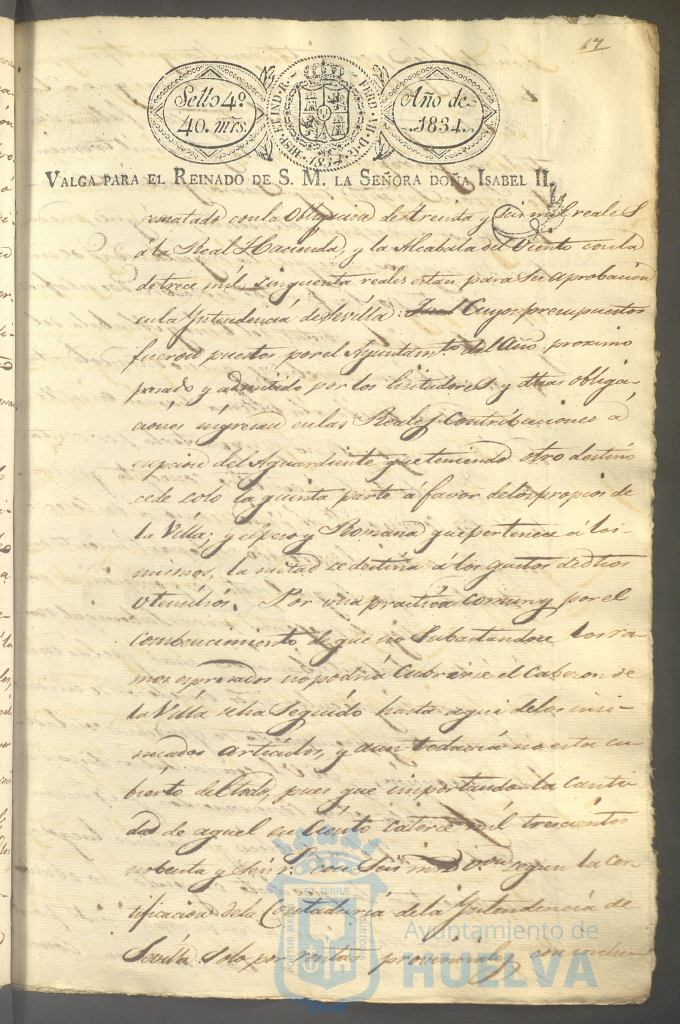 17
Sello 4º
40. mrs.
HISP. ET IND. R. FERD. VII. D. G.
1834
Año de
1834.
VALGA PARA EL REINADO DE S. M. LA SEÑORA DOÑA ISABEL II.
rematado con la Obligacion de treinta y seis mil reales
á la Real Hacienda, y la Alcabala del Viento con la
de trece mil, cinquenta reales estan para su aprobacion
en la Yntendencia de Sevilla: Cuyos presupuestos
fueron puestos por el Ayuntamto. del Año proximo
pasado y admitido por los licitadores. y dhas obliga-
ciones ingresan en las Reales Contribuciones á
espcion del Aguardiente que teniendo otro destino
cede solo la quinta parte á favor de los propios de
la Villa; y el peso y Romana que pertenece á los
mismos, la mitad se destina á los gastos de dhos
Utencilios. Por una practica comun y por el
combencimiento de que no Subastandose los ra-
mos espresados no podria Cubrirse el Cabezon de
la Villa se ha Seguido hasta aqui de los insi-
nuados articulos, y aun todavia no esta cu-
bierto del todo, pues que importando la canti-
dad de aquel en ciento catorce mil trescientos
nobenta y Seis rs. con Seis mrs von segun la cer-
tificacion de la Contaduría de la Yntendencia de
Sevilla solo por rentas provinciales con inclu-
PORTUS MARIS ET TERRÆ CUSTODIA
Ayuntamiento de
HUELVA